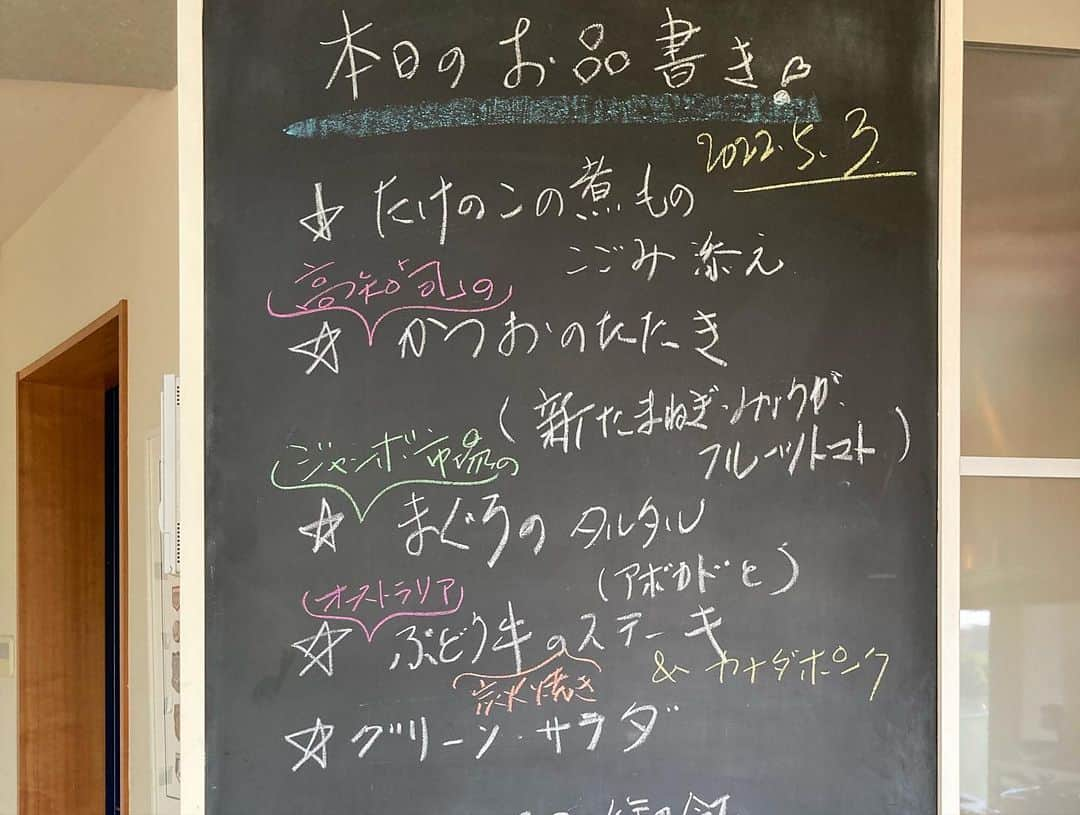 本日のお品書き!
2022.5.3
☆ たけのこの煮もの
こごみ添え
高知風の
☆ かつおのたたき
(新たまねぎ・みょうが
フルーツトマト)
ジャンボ市場の
☆ まぐろのタルタル
(アボカドと)
オーストラリア
☆ ぶどう牛のステーキ
& カナダポーク
炭火焼き
☆ グリーン・サラダ